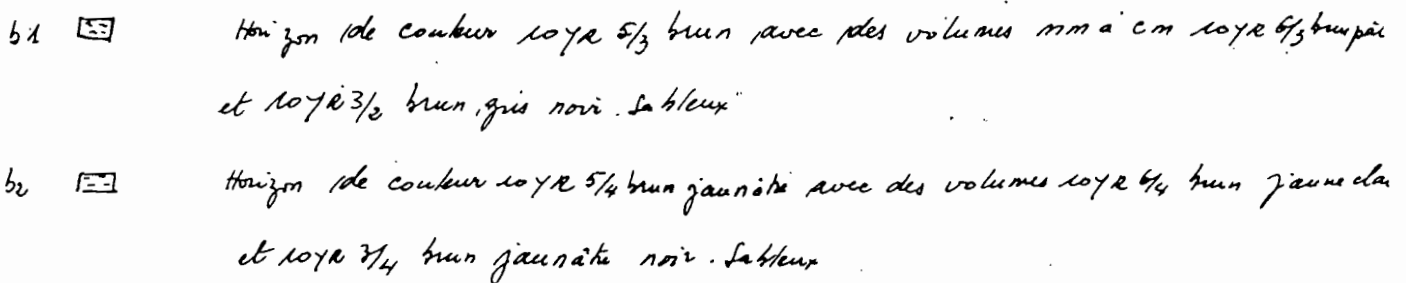 b1 Horizon de couleur 10YR 5/3 brun avec des volumes mm à cm 10YR 6/3 brun pâle
et 10YR 3/2 brun, gris noir. Sableux
b2 Horizon de couleur 10YR 5/4 brun jaunâtre avec des volumes 10YR 6/4 brun jaune clai
et 10YR 3/4 brun jaunâtre noir. Sableux